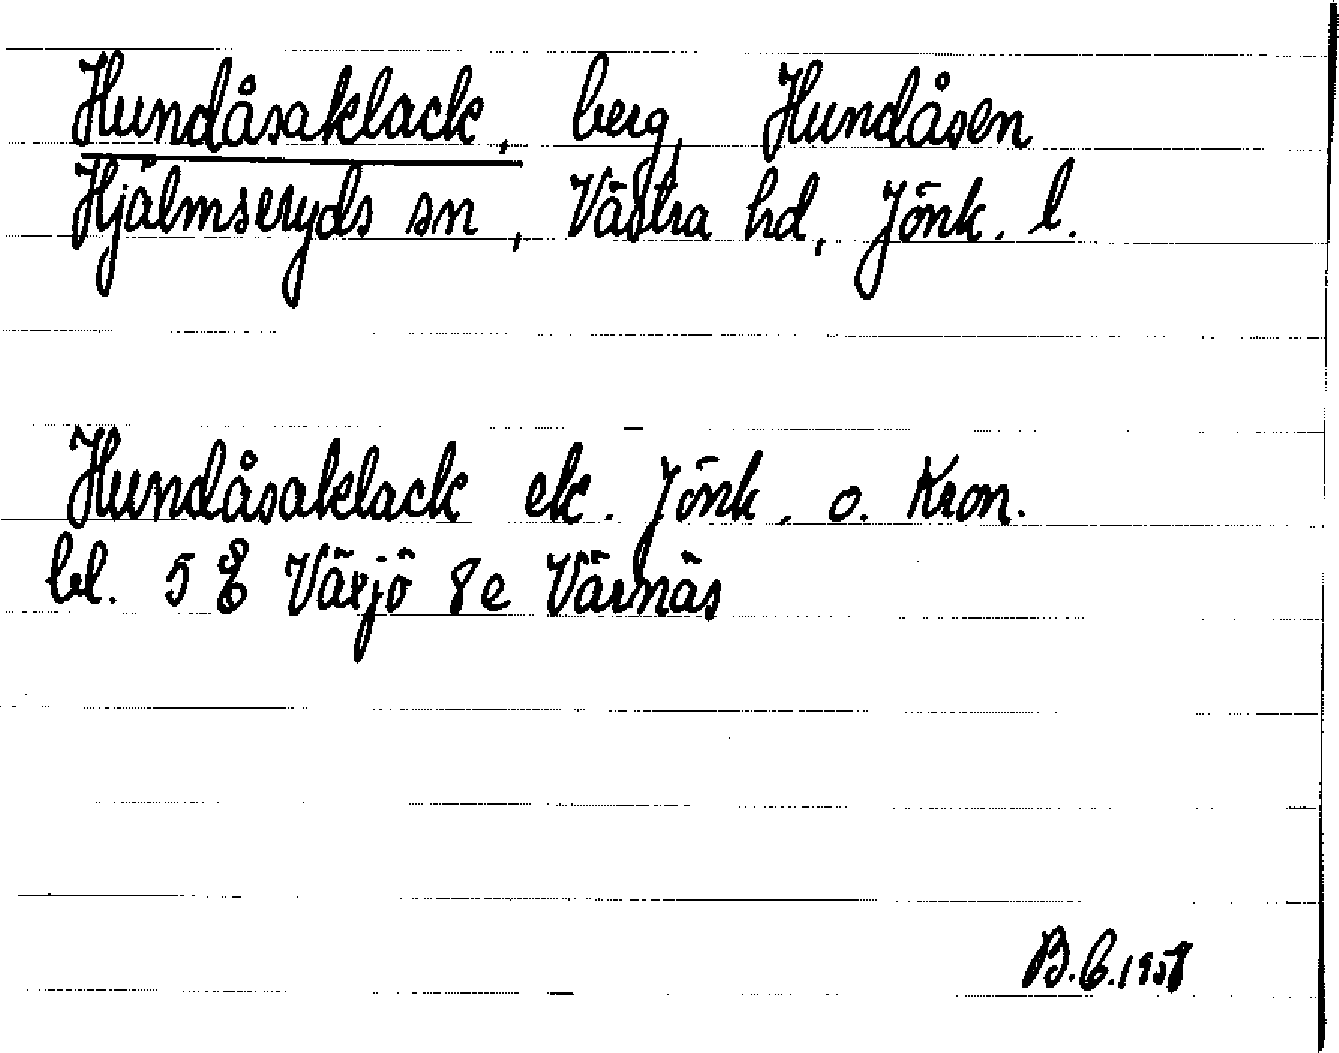 Hundåsaklack, berg, Hundåsen
Hjälmseryds sn, Västra hd, Jönk. l.
Hundåsaklack ek. Jönk. o. Kron.
bl. 5 E Växjö 8e Värnäs
B.C.1958